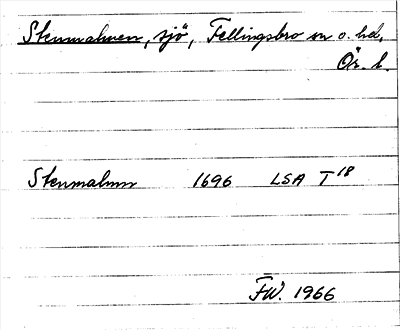 Stenmalmen, sjö, Fellingsbro sn o. hd,
Ör. l.
Stenmalmn 1696 LSA T18
FW. 1966